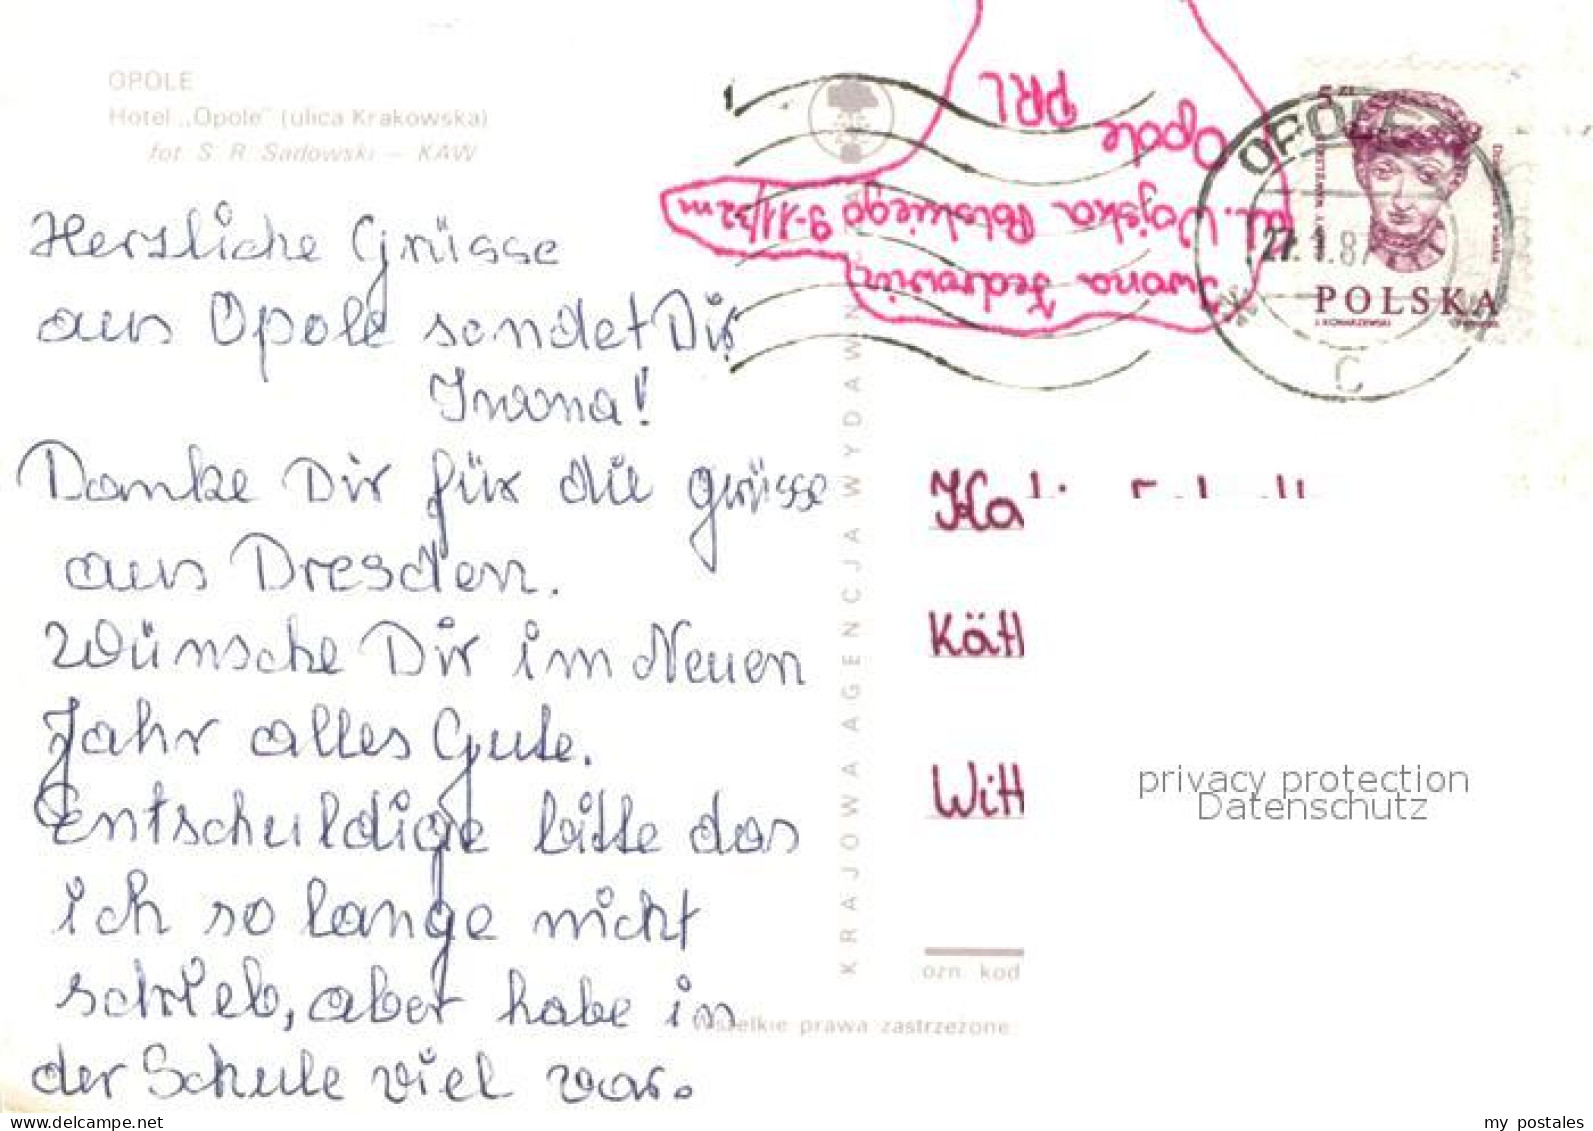 OPOLE
Hotel „Opole" (ulica Krakowska)
fot. S. R. Sadowski — KAW
Herzliche Grüsse
aus Opole sendet Dir
Iwona!
Danke Dir für die grüsse
aus Dresden.
Wünsche Dir im Neuen
Jahr alles Gute.
Entschuldige bitte das
ich so lange nicht
schrieb, aber habe in
der Schule viel vor.
KRAJOWA AGENCJA WYDAWN
Iwona
al. Wojska Polskiego 9-11/32m
Opole
PRL
5 zł
POLSKA
OPOLE
27. 1.87
C
Ka
Kätl
Witt
privacy protection
Datenschutz
ozn. kod
Wszelkie prawa zastrzeżone
my postales
www.delcampe.net